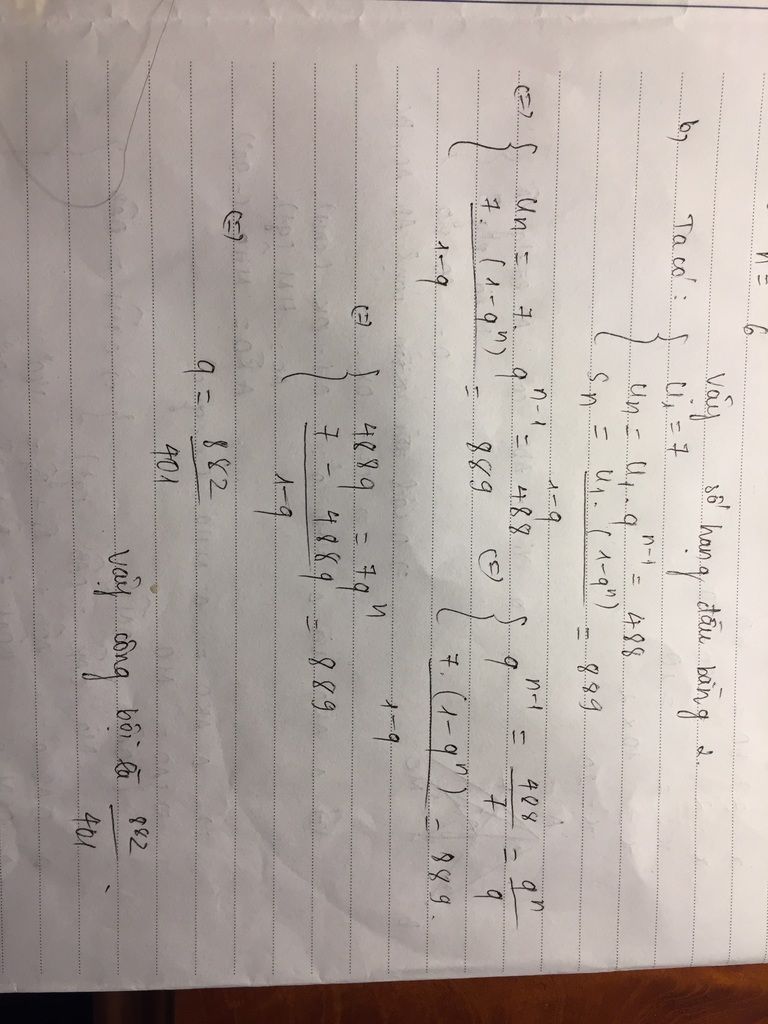 n = 6
Vậy số hạng đầu bằng 2.
b, Ta có: { U1 = 7
Un = U1 . q^(n-1) = 488
Sn = U1 . (1-q^n) / 1-q = 889
(=) { Un = 7 . q^(n-1) = 488
7 . (1-q^n) / 1-q = 889
(=) { q^(n-1) = 488/7 = q^n/q
7 . (1-q^n) / 1-q = 889.
(=) { 488q = 7q^n
7 - 488q / 1-q = 889
(=) q = 882/401
Vậy công bội là 882/401.